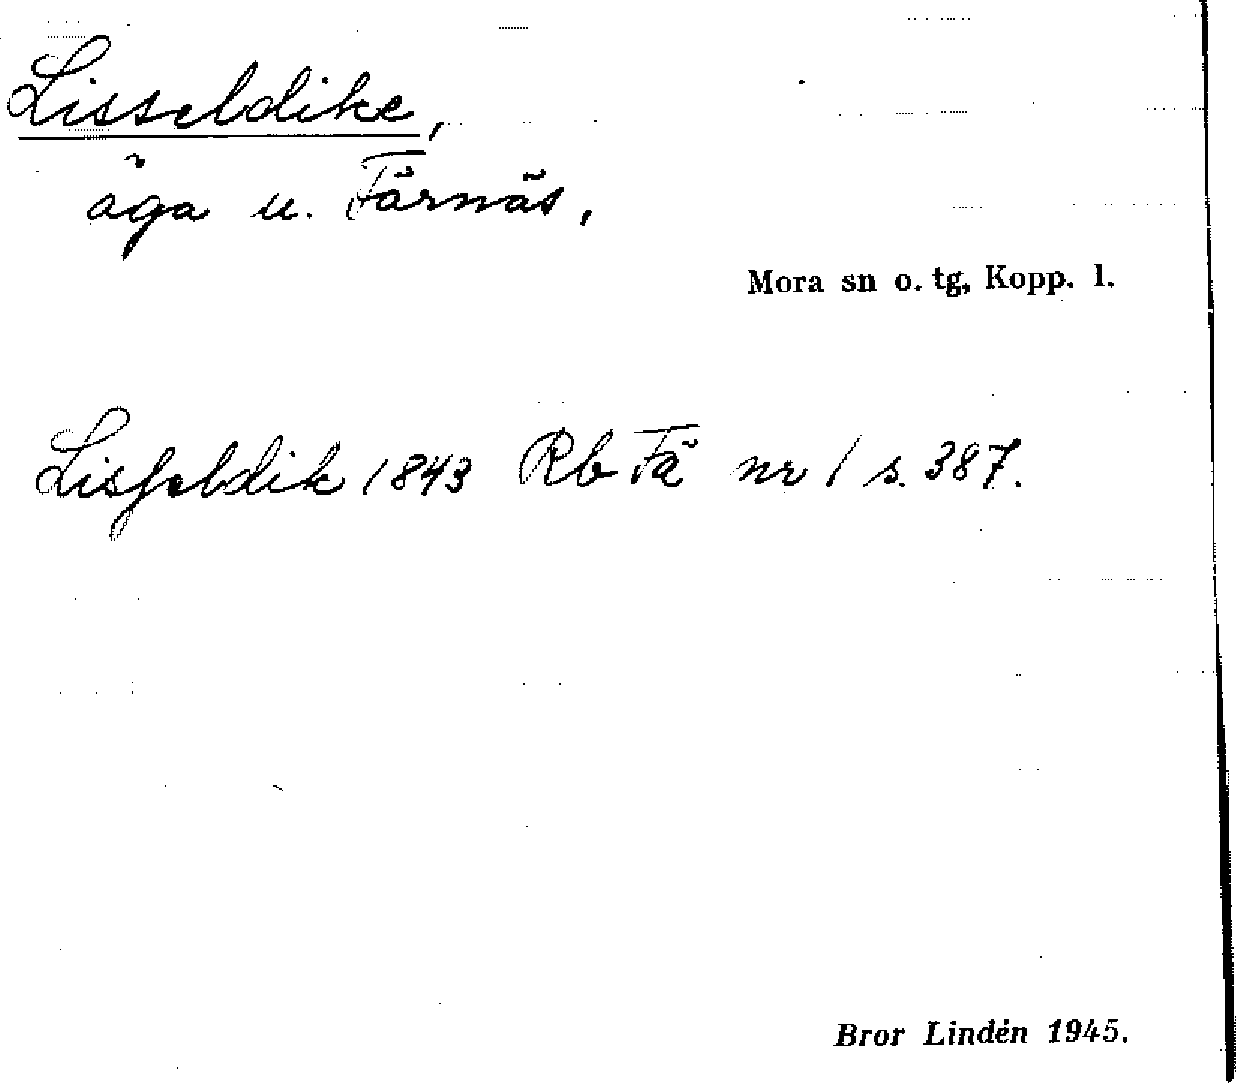 Lisseldike,
äga u. Färnäs,
Mora sn o. tg, Kopp. l.
Lisſeldik 1843 Rb Fä nr 1 s. 387.
Bror Lindén 1945.